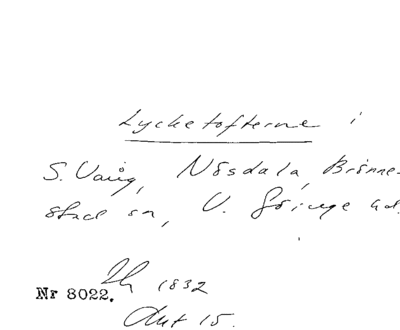 Lycketofterne i
S. Vång, Nösdala, Brönne-
stad sn, V. Göinge hd.
1832
Nr 8022.
Akt 15.